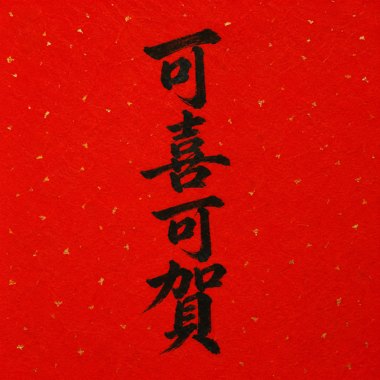 可喜可賀